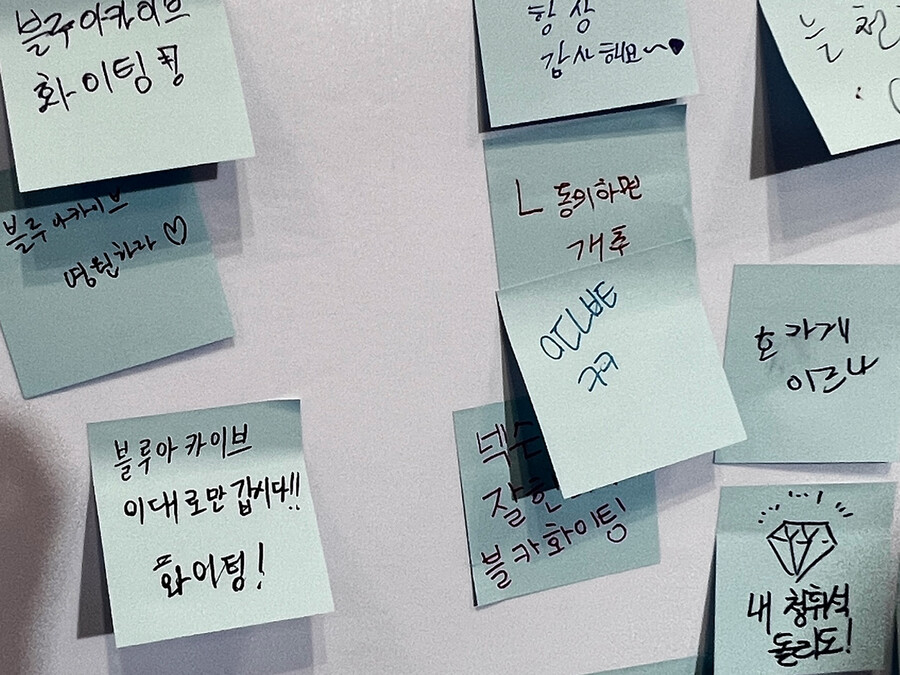 블루아카이브
화이팅
항상
감사해요~♥
블루아카이브
영원하라♡
L 동의하면
개추
호 카게
이로나
블루아 카이브
이대로만 갑시다!!
화이팅!
넥슨
잘한
블카화이팅
내 청휘석
돌리도!